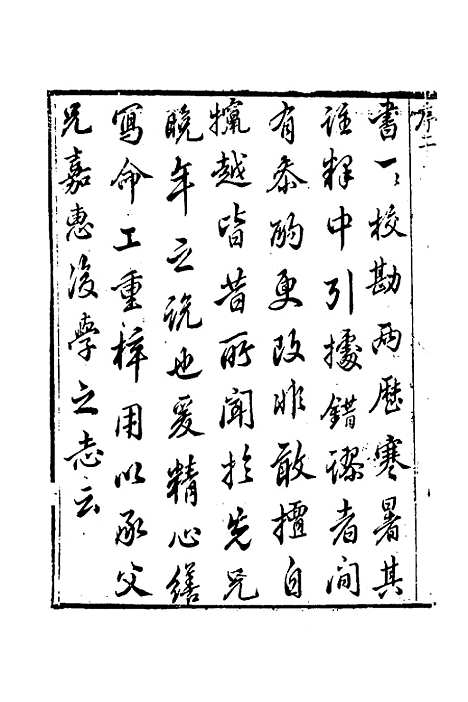 序二
書一〻校勘兩歷寒暑其
註釋中引據錯謬者間
有叅酌更改非敢擅自
攙越皆昔所聞於先兄
晚年之說也爰精心繕
寫命工重梓用以承父
兄嘉惠後學之志云